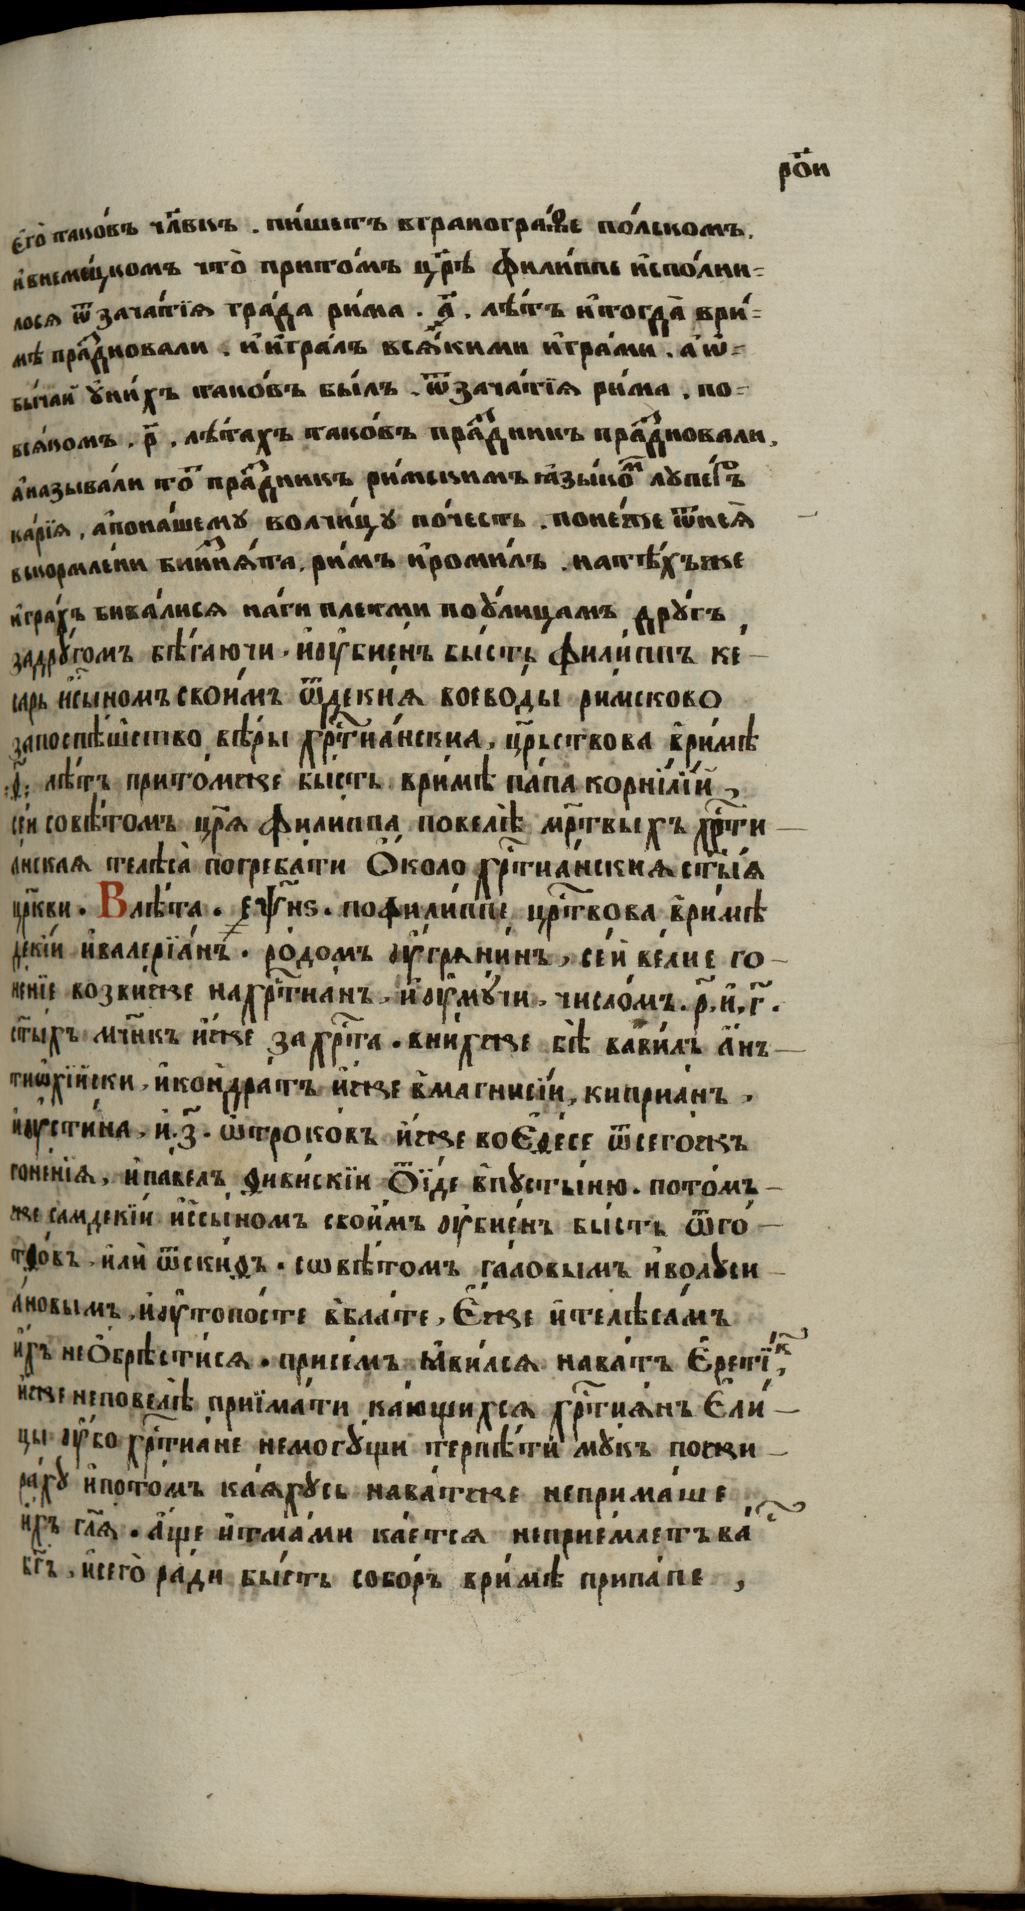 рои҃
єго̀ тако́въ чл҃вкъ . пи́шетъ вгранограѳе по́лскомъ.
и҆внемѣцкомъ что̀ прито́мъ цр҃ѣ фили́ппе и҆спо́лни=
лося ѿзача́тїя гра́да ри́ма . ҂а҃ . лѣ́тъ и҆тогда̀ ври́=
мѣ пра́здновали . и҆и҆гра́лъ вся́кими и҆гра́ми . а҆ѡ҆=
бы́чаи ᲂу҆ни́хъ тако́въ бы́лъ . ѿзача́тїя ри́ма . по=
всѧ́комъ . р҃ . лѣ́тахъ тако́въ пра́здникъ пра́здновали,
а҆называ́ли то́ пра́здникъ ри́мскимъ ꙗ҆зыко́м лупе́р
ка́рїя , а҆пона́шему волчи́цу по́честь . поне́же ѿнея̀
вскормле́ни
и҆гра́хъ бива́лися на́ги плетми поу҆́лицамъ дру́гъ
задру́гомъ бѣ́гаючи , и҆ᲂу҆бие́нъ бы́сть фили́ппъ ке —
сарь и҆ссы́номъ свои́мъ ѿдекия воево́ды ри́мсково
запоспѣ́шество вѣ́ры хрⷭ҇тиа́нския , црⷭ҇ьствова в̾ри́мѣ
.҃. лѣ́тъ прито́мже бы́сть ври́мѣ па́па корни́лїй ,
сеи совѣ́томъ цр҃я фили́ппа повелѣ̀ мр҃твыхъ хрⷭ҇ти —
анская телеса̀ погреба́ти ѻ҆́коло хрⷭ҇тиа́нския ст҃ы́я
цр҃кви . Влѣ́та . ҂єѱн҃ѕ . пофили́ппе црⷭ҇твова в̾ри́мѣ
деки́и и҆валерїа́нъ . ро́домъ ᲂу҆́грянинъ , се́й ве́лие го —
не́нїе воздви́же нахрⷭ҇тианъ , и҆ᲂу҆му́чи , число́мъ . р҃ . и҃ . г҃ .
ст҃ы́хъ мч҃нкъ и҆́же захрⷭ҇та̀ . вни́хже бѣ̀ вави́лъ а҆́н —
тиѡхїйски , и҆кондра́тъ и҆́же в̾магниси́и , киприа́нъ ,
и҆ᲂу҆сти́на , и҆ . з҃ . ѡ҆троковъ и҆́же воє҆ѳе́се ѿсего́жъ
гоне́нїя , и҆па́велъ ѳиви́скїи ѿи́де в̾пусты́ню . пото́мъ —
же сам декі́и и҆ссы́номъ свои́мъ ᲂу҆бие́нъ бы́сть ѿго́ —
тѳовъ , и҆лѝ ѿски́ѳъ . сѡвѣ́томъ га́ловымъ и҆волуси —
а́новымъ , и҆ᲂу҆топо́сте в̾бла́те , є҆́же и҆телѣса́мъ
и҆́хъ неѻ҆брѣ́стися . присе́мъ ꙗ҆ви́лся нава́тъ є҆рети́к ,
и҆́же неповелѣ̀ прїима́ти ка́ющихся хрⷭ҇тия́нъ є҆ли́ —
цы ᲂу҆́бо хрⷭ҇тиане немогу́щи терпѣ́ти му́къ пожи —
ра́ху и҆пото́мъ ка́яхусь нава́тже неприма́ше ,
и҆́хъ гл҃я . а҆́ще и҆тма́ми ка́ется неприе́млетъ ва́с
бг҃ъ , и҆сего̀ ра́ди бы́сть собо́ръ ври́мѣ припа́пе ,